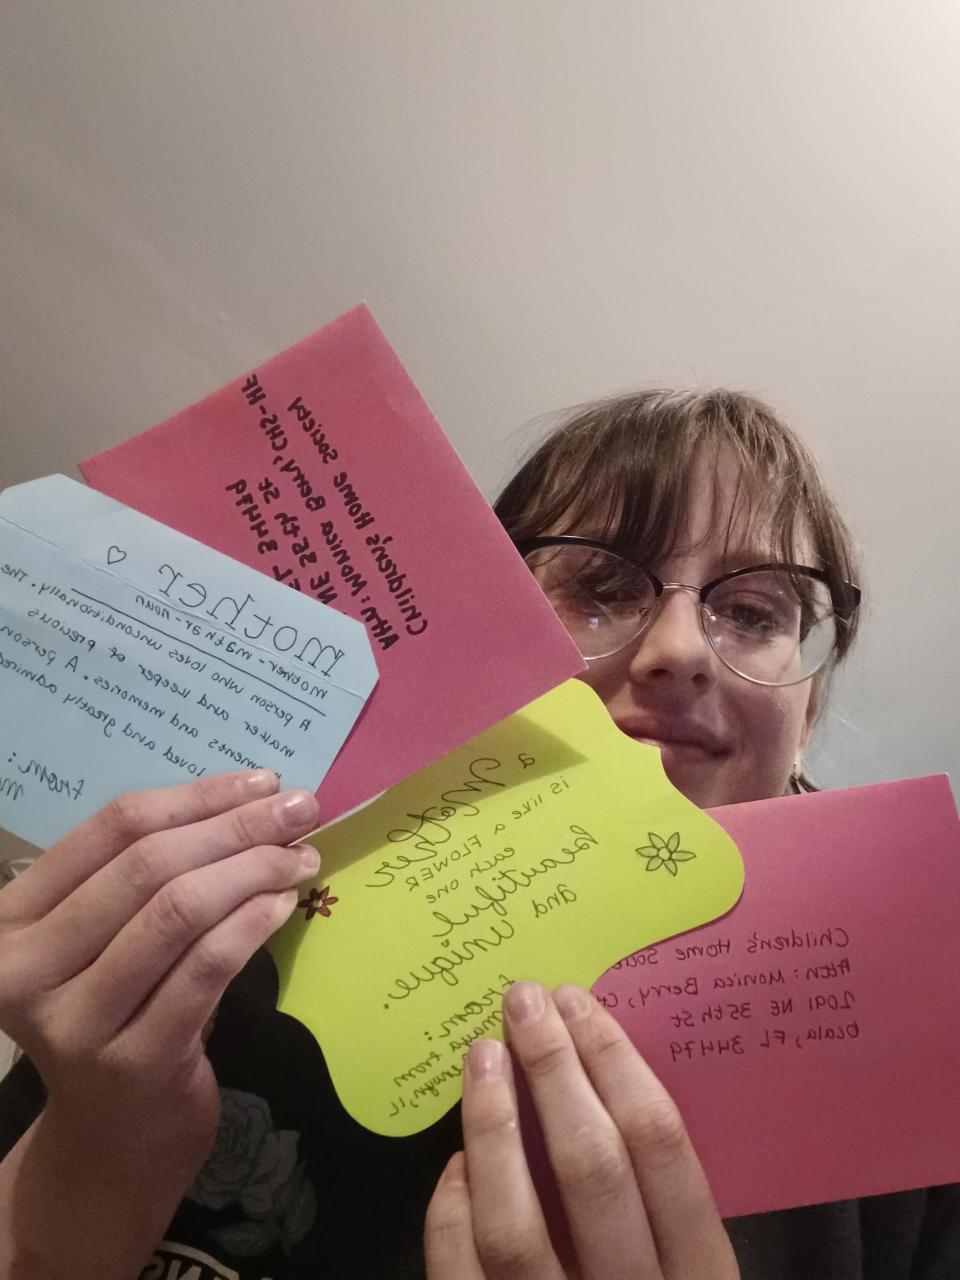 Children's Home Society
Attn: Monica Berry, CHS-HF
NE 35th St
FL 34479
mother
mother-math·er-noun
A person who loves unconditionally. The
maker and keeper of precious
moments and memories. A person
loved and greatly admired
from:
a
Mother
is like a FLOWER
each one
Beautiful
and
unique.
from:
maya from
IL
Children's Home
Attn: Monica Berry,
2091 NE 35th St
Ocala, FL 34479